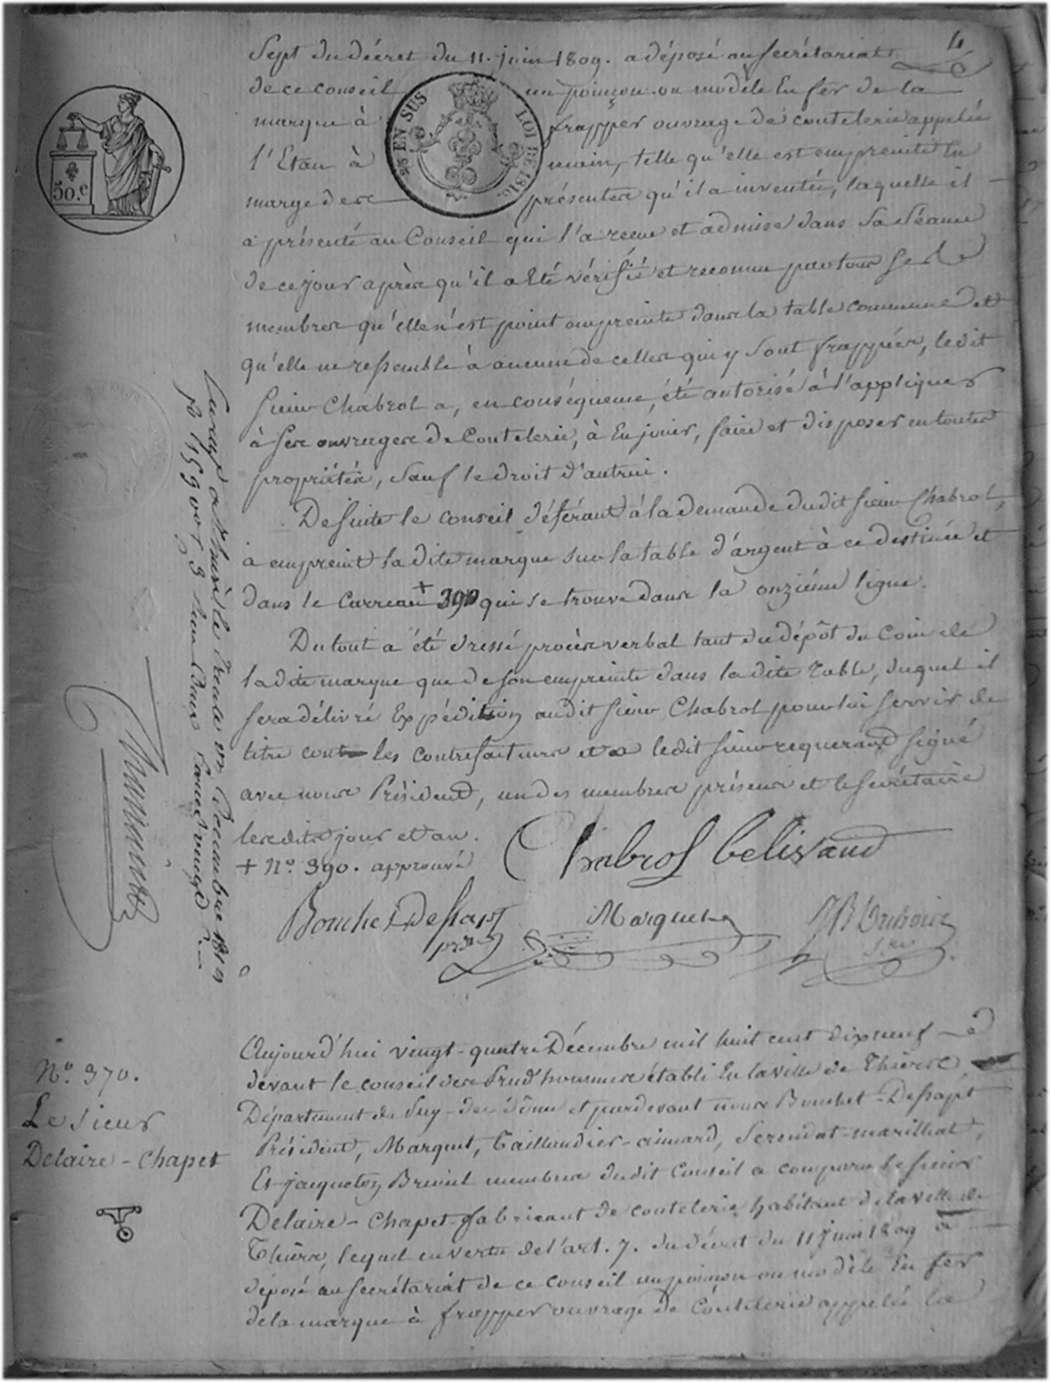 4
Sept du décret du 11. juin 1809. a déposé au secrétariat
de ce conseil un poinçon ou modèle En fer de la
marque à frapper ouvrage de coutelerie appelée
l'Etau à main, telle qu'elle est empreinte En
marge des présentes qu'il a inventée, laquelle il
a présenté au Conseil qui l'a recue et admise dans Sa Séance
de ce jour après qu'il a Eté vérifié et reconnu par tous ses
membres qu'elle n'est point empreinte dans la table commune et
qu'elle ne ressemble à aucune de celles qui y Sont frappées, ledit
Sieur Chabrol a, en conséquence, été autorisé à l'appliquer
à ses ouvrages de Coutelerie, à En jouir, faire et disposer en toutes
propriétés, Sauf le droit d'autrui.
De suite le conseil déférant à la demande dudit Sieur Chabrol,
à empreint la dite marque sur la table d'argent à ce destinée et
dans le Carreau + 390 qui se trouve dans la onzième ligne.
Du tout a été dressé procès verbal tant du dépôt du Coin de
la dite marque que de son empreinte dans la dite Table, duquel il
sera délivré Expédition audit Sieur Chabrol pour lui servir de
titre contre les contrefacteurs et a ledit Sieur requerant signé
avec nous Président, un des membres présens et le Secrétaire
lesdits jour et an.
+ No. 390. approuvé
Chabrol belisaud
Bouchet Dessapt Marquet JB Dubois
prt Sre
50.c
EN SUS
LOI DE 1816
No. 370.
Le Sieur
Delaire - Chapet
Aujourd'hui vingt-quatre Décembre mil huit cent dix neuf
devant le conseil des Prud'hommes établi En la ville de Thiers
Département du Puy-de-Dôme et pardevant nous Bouchet-Dessapt
Président, Marquet, Taillandier-aimard, Serendat-marilhat,
Et Jacqueton Breuil membres dudit Conseil a comparu le Sieur
Delaire - Chapet fabricant de coutelerie habitant de la ville de
Thiers, lequel en vertu de l'art. 7. du décret du 11 juin 1809 a
déposé au secrétariat de ce conseil un poinçon ou modèle En fer
de la marque à frapper ouvrage de Coutelerie appelée la